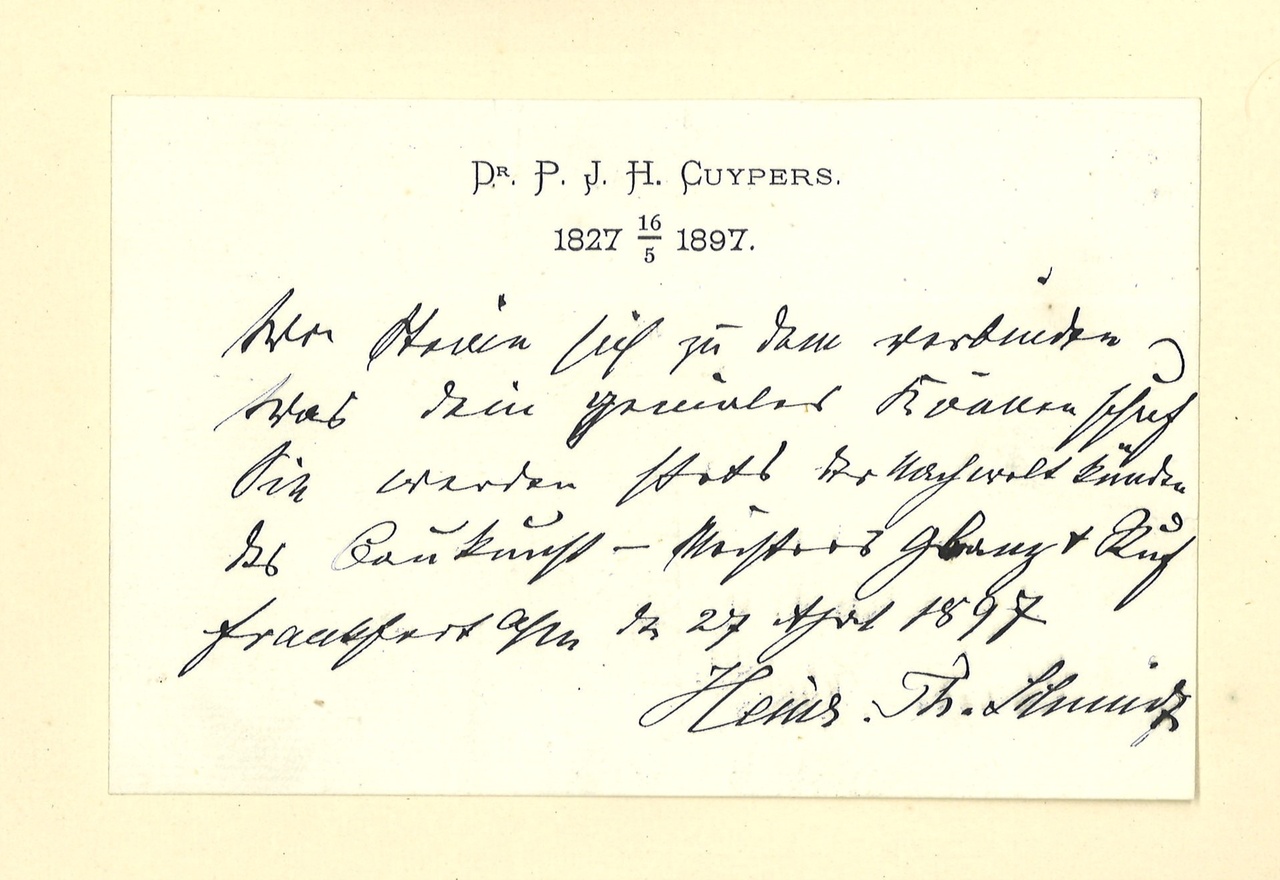 Dr. P. J. H. Cuypers.
1827 16/5 1897.
Wo Steine sich zu dem verbinden
Was dein geniales Können schuf
Sie werden stets der Nachwelt künden
des Baukunst – Meisters Glanz & Ruf
Frankfurt a/m d. 27 April 1897
Heinr. Th. Schmidt